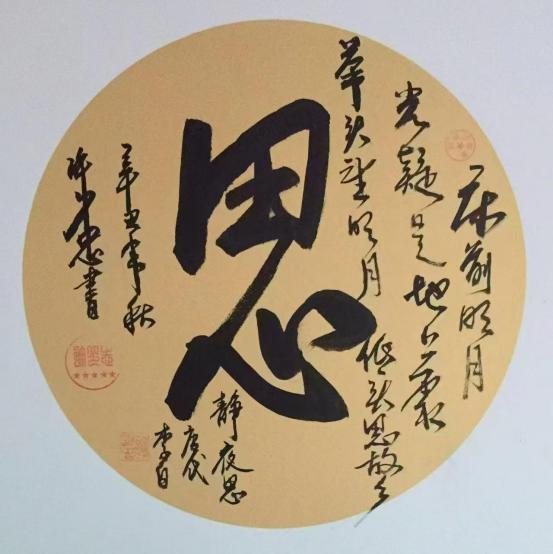 床前明月
光疑是地上霜
举头望明月
低头思故乡
思
静夜思
唐代
李白
辛丑年秋
忠書